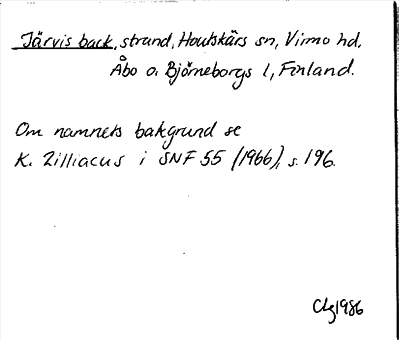 Järvis back, strand, Houtskärs sn, Virmo hd,
Åbo o. Björneborgs l, Finland.
Om namnets bakgrund se
K. Zilliacus i SNF 55 (1966), s. 196.
1986